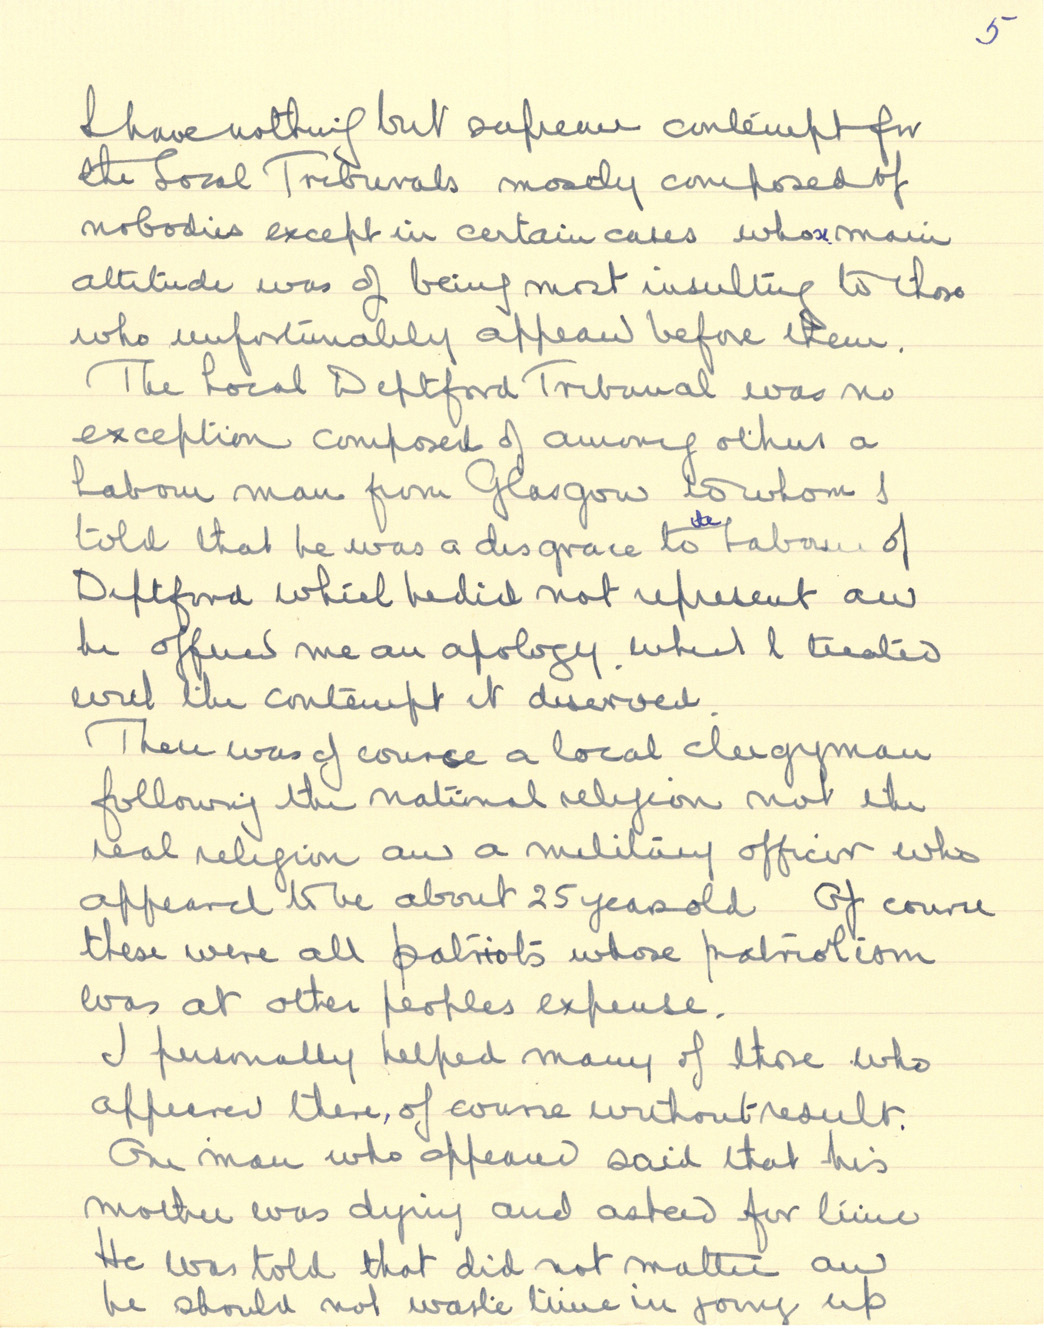 5
I have nothing but supreme contempt for
the Local Tribunals mostly composed of
nobodies except in certain cases whose main
attitude was of being most insulting to those
who unfortunately appeard before them.
The Local Deptford Tribunal was no
exception composed of among others a
Labour man from Glasgow to whom I
told that he was a disgrace to the Labour of
Deptford which he did not represent and
he offered me an apology which I treated
with the contempt it deserved.
There was of course a local clergyman
following the national religion not the
real religion and a military officer who
appeared to be about 25 years old Of course
these were all patriots whose patriotism
was at other peoples expense.
I personally helped many of those who
appeared there, of course without result.
One man who appeared said that his
mother was dying and asked for time
He was told that did not matter and
he should not waste time in joing up